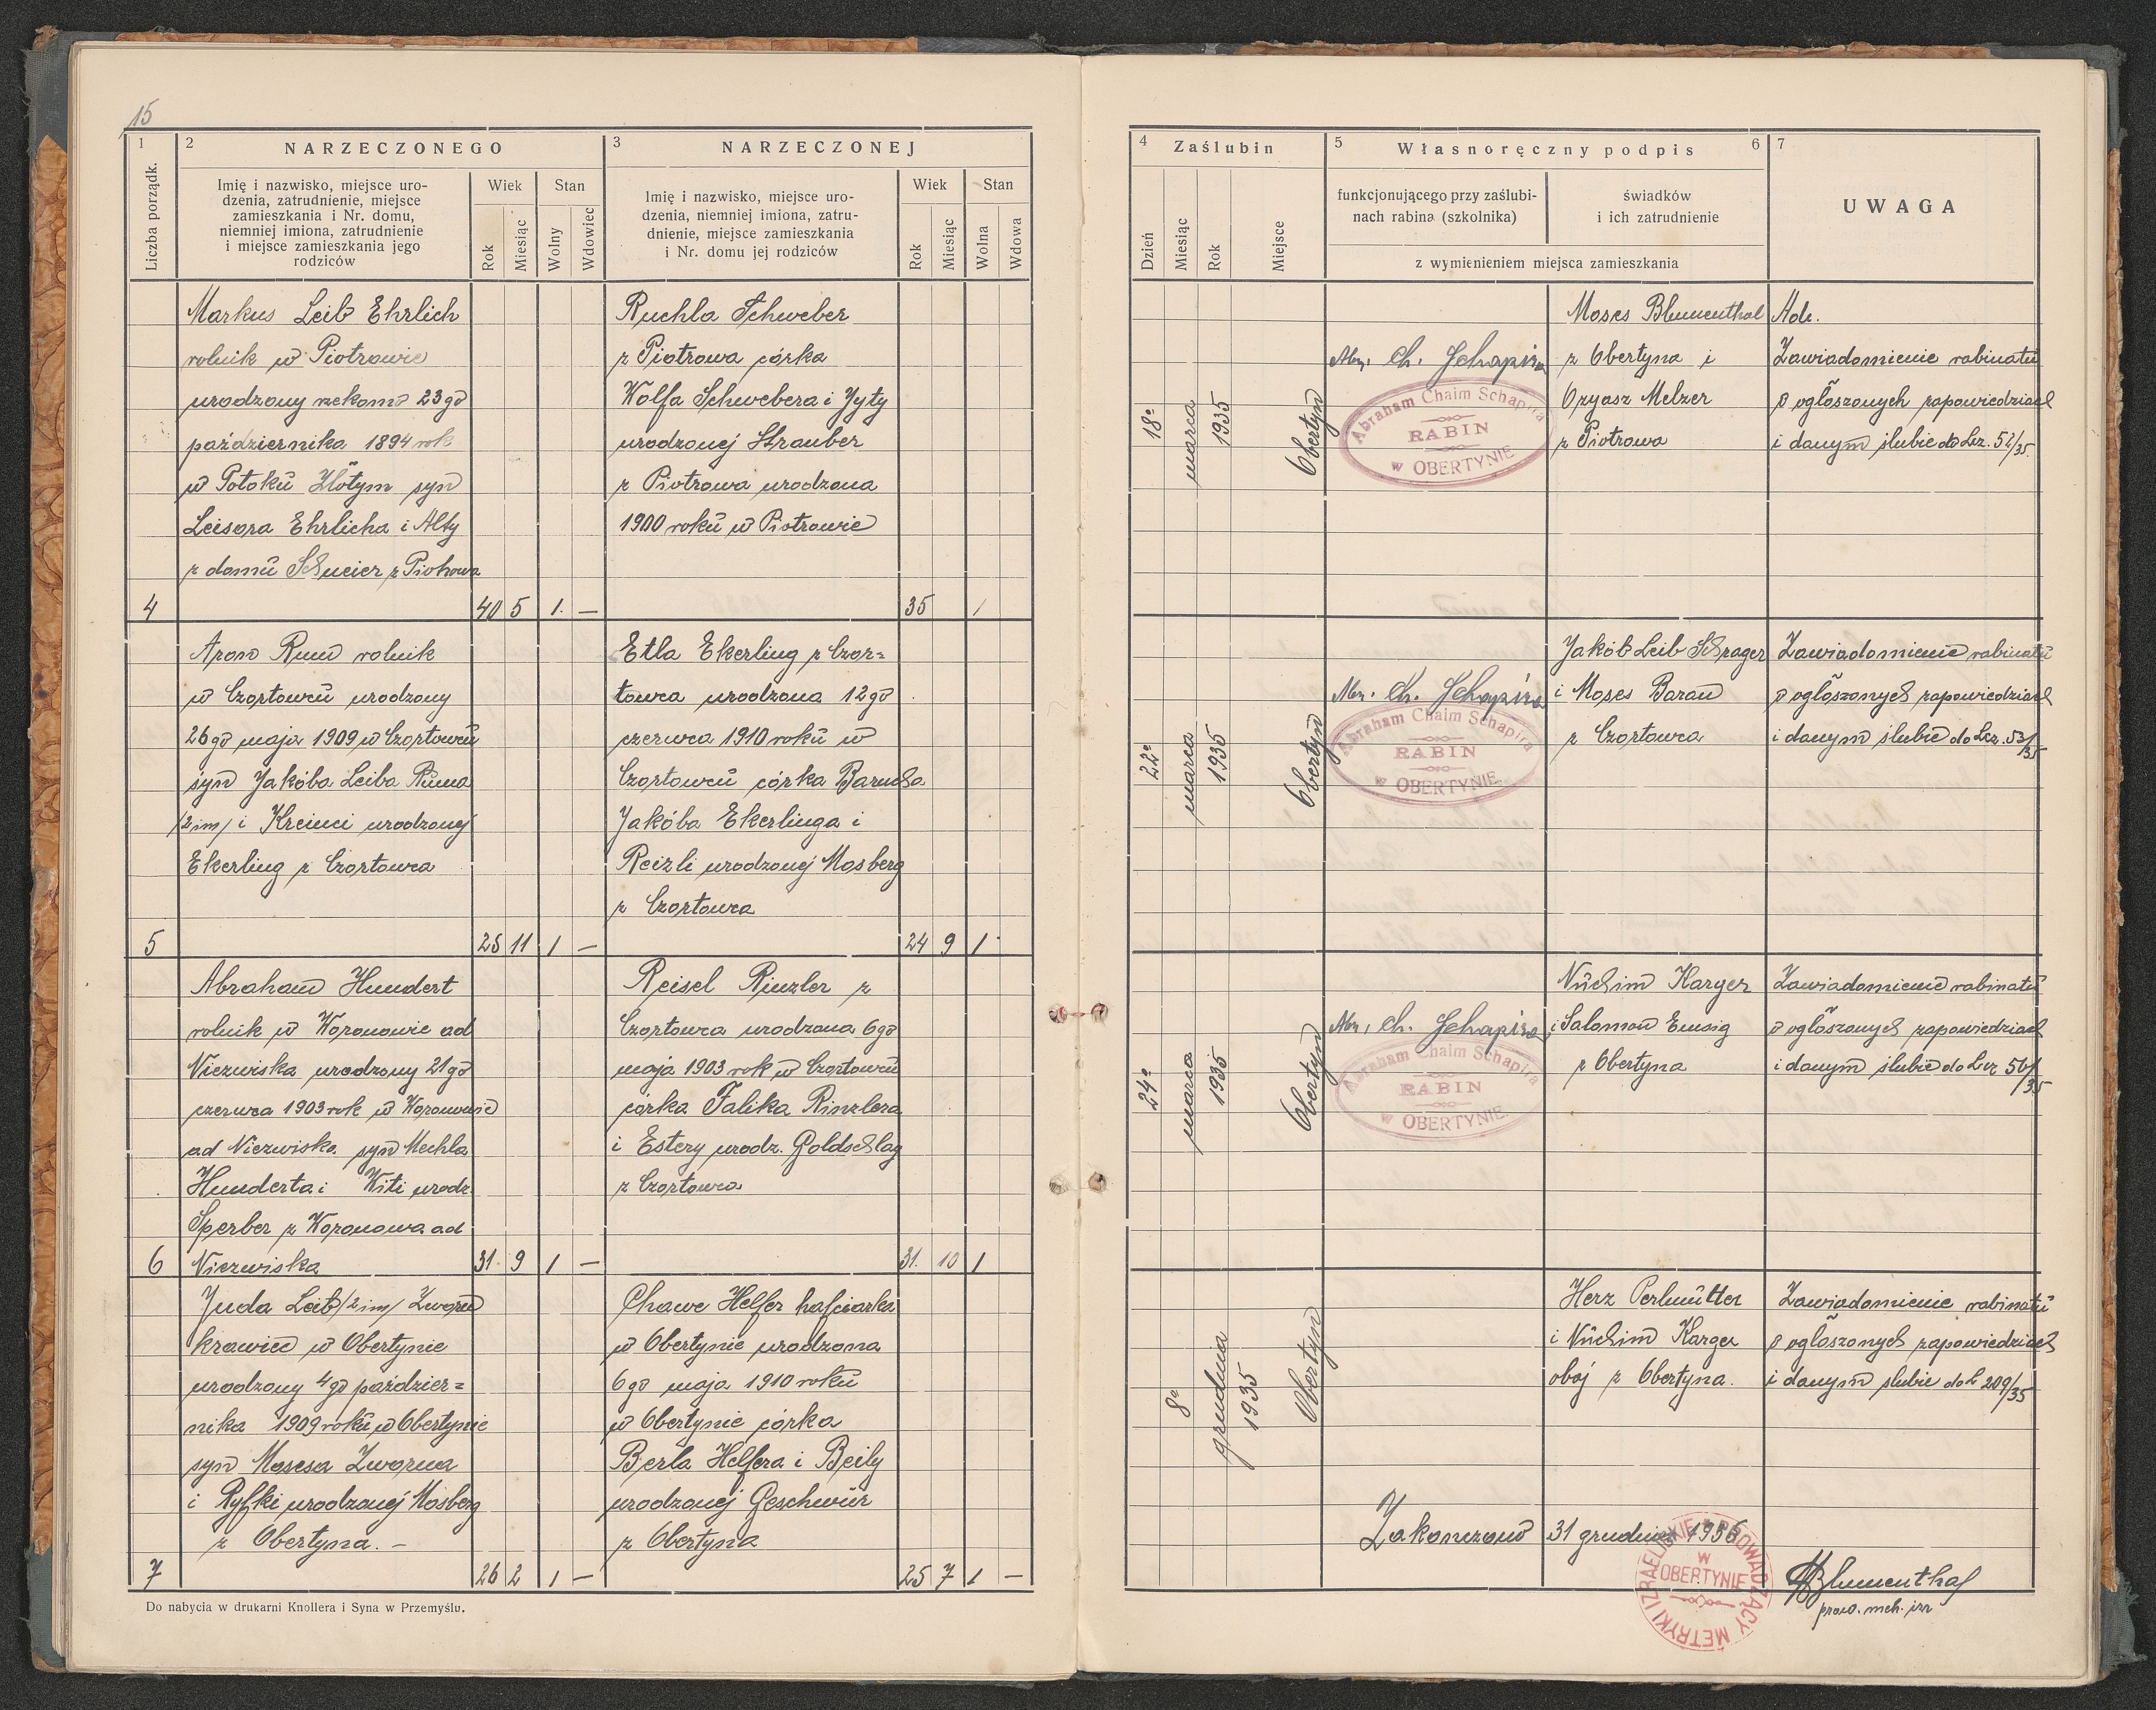 15
1
2
NARZECZONEGO
3
NARZECZONEJ
Liczba porządk.
Imię i nazwisko, miejsce uro-
dzenia, zatrudnienie, miejsce
zamieszkania i Nr. domu,
niemniej imiona, zatrudnienie
i miejsce zamieszkania jego
rodziców
Wiek
Stan
Rok
Miesiąc
Wolny
Wdowiec
Imię i nazwisko, miejsce uro-
dzenia, niemniej imiona, zatru-
dnienie, miejsce zamieszkania
i Nr. domu jej rodziców
Wiek
Stan
Rok
Miesiąc
Wolna
Wdowa
4
Zaślubin
5
Własnoręczny podpis
6
7
Dzień
Miesiąc
Rok
Miejsce
funkcjonującego przy zaślubi-
nach rabina (szkolnika)
świadków
i ich zatrudnienie
z wymienieniem miejsca zamieszkania
UWAGA
Markus Leib Ehrlich
rolnik w Piotrowie
urodzony rzekomo 23go
października 1894 rok
w Potoku Złotym syn
Leisora Ehrlicha i Alty
z domu Schneier z Piotrowa
4
40 5 1. —
Ruchla Schweber
z Piotrowa córka
Wolfa Schwebera i Jyty
urodzonej Strauber
z Piotrowa urodzona
1900 roku w Piotrowie
35 1
18o
marca
1935
Obertyn
Abr. Ch. Schapira
Abraham Chaim Schapira
RABIN
w OBERTYNIE
Moses Blumenthal
z Obertyna i
Ozyasz Melzer
z Piotrowa
Adr.
Zawiadomienie rabinatu
o ogłoszonych zapowiedziach
i danym ślubie do Lcz. 52/35.
Aron Rum rolnik
w Czortowcu urodzony
26go maja 1909 w Czortowcu
syn Jakóba Leiba Ruma
/2 im/ i Kreinci urodzonej
Ekerling z Czortowca
5
25 11 1 —
Etla Ekerling z Czor=
towca urodzona 12go
czerwca 1910 roku w
Czortowcu córka Barucha
Jakóba Ekerlinga i
Reizli urodzonej Mosberg
z Czortowca
24 9 1
22o
marca
1935
Obertyn
Abr. Ch. Schapira
Abraham Chaim Schapira
RABIN
w OBERTYNIE
Jakób Leib Schrager
i Moses Baran
z Czortowca
Zawiadomienie rabinatu
o ogłoszonych zapowiedziach
i danym ślubie do Lcz. 53/35
Abraham Hundert
rolnik w Woronowie ad
Niezwiska urodzony 21go
czerwca 1903 rok w Woronowie
ad Niezwiska syn Mechla
Hunderta i Witi urodz.
Sperber z Woronowa ad
Niezwiska
6
31 9 1 —
Reisel Rinzler z
Czortowca urodzona 6go
maja 1903 rok w Czortowcu
córka Falika Rinzlera
i Estery urodz. Goldschlag
z Czortowca
31. 10 1
24o
marca
1935
Obertyn
Abr. Ch. Schapira
Abraham Chaim Schapira
RABIN
w OBERTYNIE
Nuchim Karger
i Salomon Emsig
z Obertyna
Zawiadomienie rabinatu
o ogłoszonych zapowiedziach
i danym ślubie do Lcz 56/35
Juda Leib /2 im/ Zworn
krawiec w Obertynie
urodzony 4go paździer=
nika 1909 roku w Obertynie
syn Mosesa Zworna
i Ryfki urodzonej Mosberg
z Obertyna. —
7
26 2 1 —
Chawe Helfer hafciarka
w Obertynie urodzona
6go maja 1910 roku
w Obertynie córka
Berla Helfera i Beily
urodzonej Geschwür
z Obertyna
25 7 1 —
8o
grudnia
1935
Obertyn
Herz Perlmutter
i Nuchim Karger
obaj z Obertyna.
Zawiadomienie rabinatu
o ogłoszonych zapowiedziach
i danym ślubie do L 209/35
Zakończono 31 grudnia 1936
PROWADZĄCY METRYKI IZRAELICKIE
W
OBERTYNIE
Blumenthal
prow. meh. izr
Do nabycia w drukarni Knollera i Syna w Przemyślu.